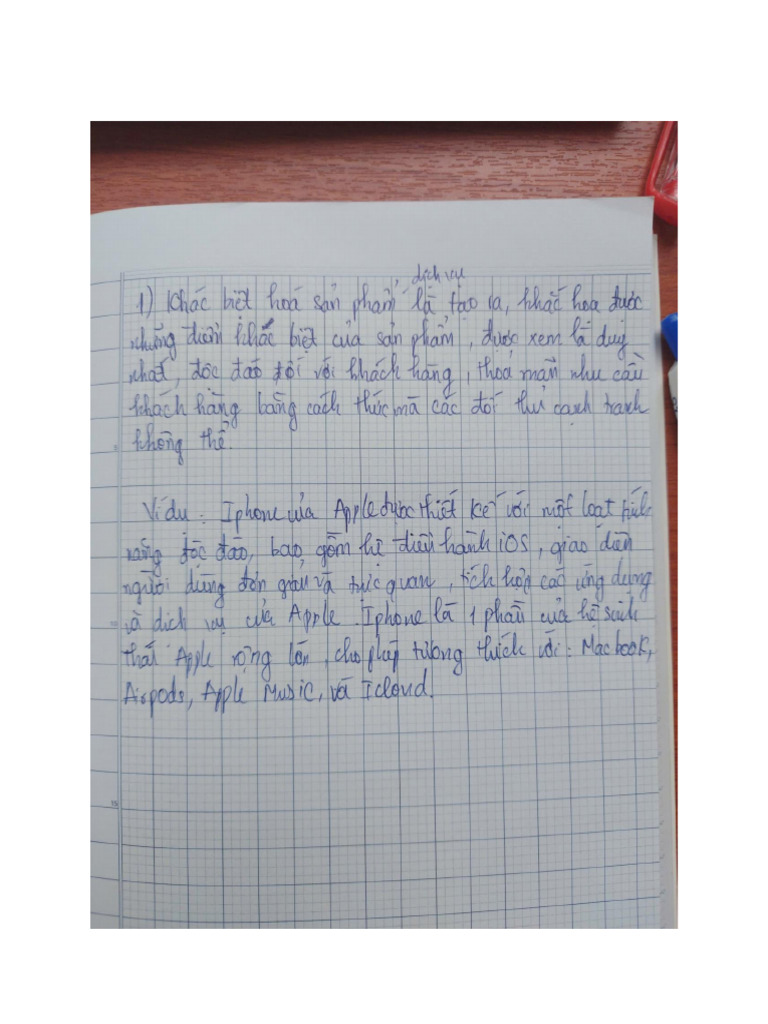 dịch vụ
1) Khác biệt hoá sản phẩm là tạo ra, khắc hoạ được
những điểm khác biệt của sản phẩm, được xem là duy
nhất, độc đáo đối với khách hàng, thoả mãn nhu cầu
khách hàng bằng cách thức mà các đối thủ cạnh tranh
không thể.
Ví dụ: Iphone của Apple được thiết kế với một loạt tính
năng độc đáo, bao gồm hệ điều hành iOS, giao diện
người dùng đơn giản và trực quan, tích hợp các ứng dụng
và dịch vụ của Apple. Iphone là 1 phần của hệ sinh
thái Apple rộng lớn, cho phép tương thích với: Macbook,
Airpods, Apple Music, và Icloud.